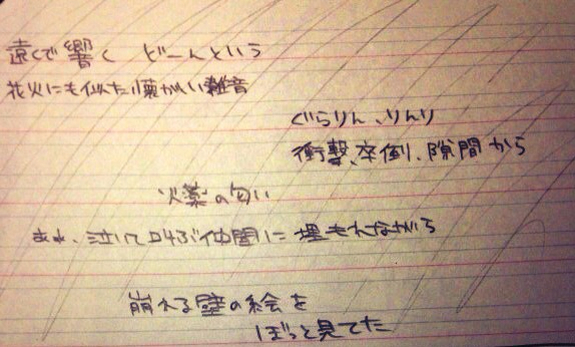 遠くで響く どーんという
花火にも似た懐かしい雑音
ぐらりん、りんり
衝撃、卒倒、隙間から
火薬の匂い
あれ、泣いて叫ぶ仲間に埋もれながら
崩れる壁の絵を
ぼっと見てた